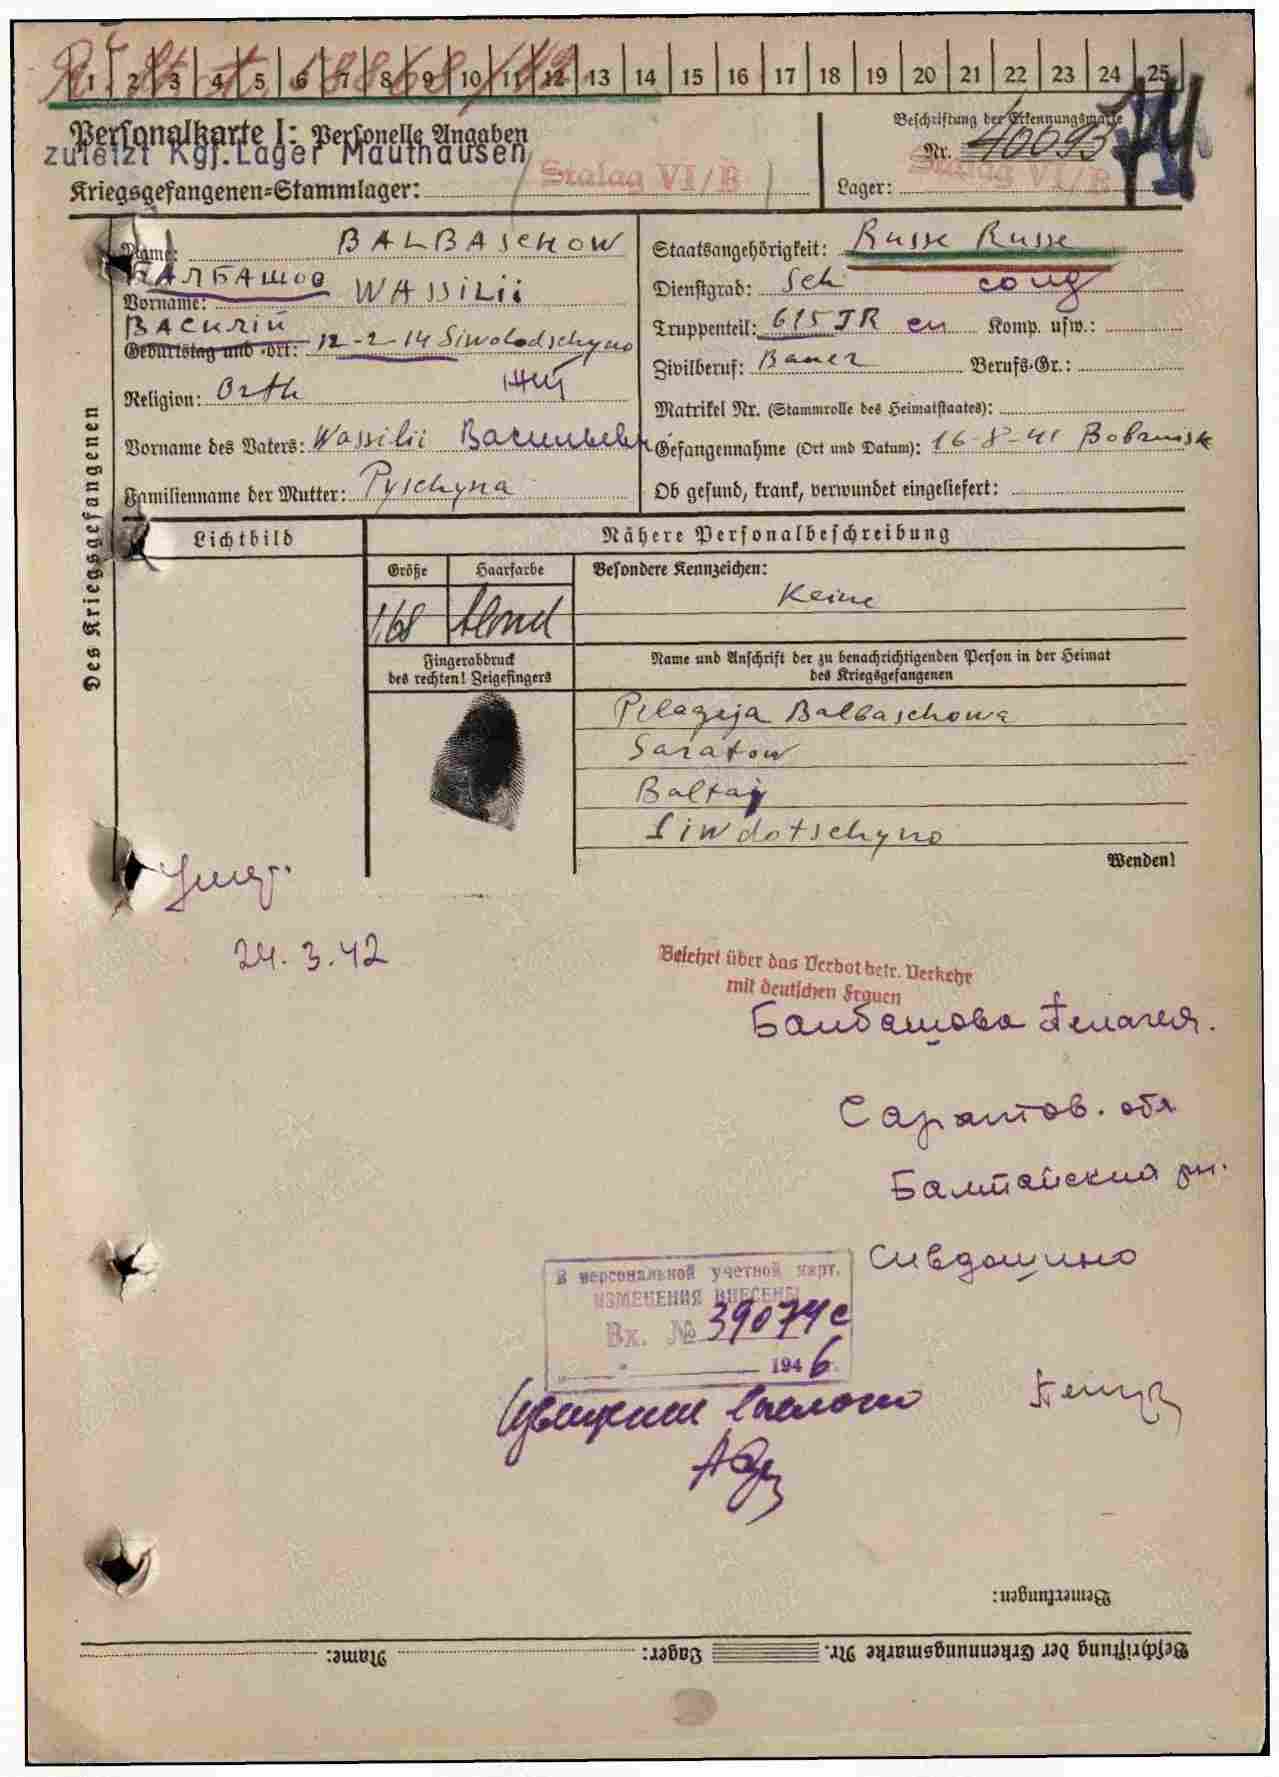 1 2 3 4 5 6 7 8 9 10 11 12 13 14 15 16 17 18 19 20 21 22 23 24 25
Personalkarte I: Personelle Angaben
zuletzt Kgf.Lager Mauthausen
Kriegsgefangenen-Stammlager: Stalag VI/B
Beschriftung der Erkennungsmarke
Nr. 40093
Lager: Stalag VI/B
Des Kriegsgefangenen
Name: BALBASCHOW
БАЛБАШОВ
Vorname: WASSILii
ВАСИЛИЙ
Geburtstag und -ort: 12-2-14 Siwolodschyno
Religion: Orth
Vorname des Vaters: Wassilii Васильевич
Familienname der Mutter: Pyschyna
Staatsangehörigkeit: Russe Russe
Dienstgrad: Sch солд
Truppenteil: 615 JR сп Komp. usw.:
Zivilberuf: Bauer Berufs-Gr.:
Matrikel Nr. (Stammrolle des Heimatstaates):
Gefangennahme (Ort und Datum): 16-8-41 Bobruisk
Ob gesund, krank, verwundet eingeliefert:
Lichtbild
Nähere Personalbeschreibung
Größe Haarfarbe Besondere Kennzeichen:
1,68 blond Keine
Fingerabdruck
des rechten! Zeigefingers
Name und Anschrift der zu benachrichtigenden Person in der Heimat
des Kriegsgefangenen
Pelageja Balbaschowa
Saratow
Baltaj
Siwdotschyno
Wenden!
24.3.42
Belehrt über das Verbot betr. Verkehr
mit deutschen Frauen
Балбашова Пелагея.
Саратов. обл
Балтайский рн.
Сивдошино
В персональной учетной карт.
ИЗМЕНЕНИЯ ВНЕСЕНЫ
Вх. № 39074с
1946
Bemerkungen:
Beschriftung der Erkennungsmarke Nr. Lager: Name: